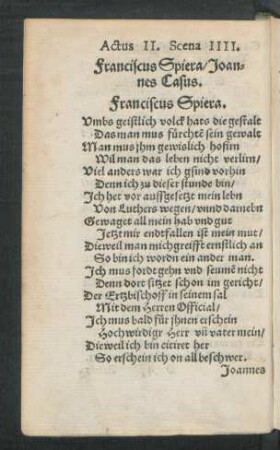 Actus II. Scena IIII.
Franciscus Spiera/Joan-
nes Casus.
Franciscus Spiera.
Vmbs geistlich volck hats die gestalt
Das man mus fürchtẽ sein gewalt
Man mus jhm gewislich hofirn
Wil man das leben nicht verlirn/
Viel anders war ich gsind vorhin
Denn ich zu dieser stunde bin/
Ich het vor auffgesetzt mein leben
Von Luthers wegen/vnnd darnebn
Gewaget all mein hab vnd gut
Jetzt mir endtfallen ist mein mut/
Dieweil man mich greifft ernstlich an
So bin ich wordn ein ander man.
Ich mus fordt gehn vnd seumẽ nicht
Denn dort sitzet schon im gericht/
Der Ertzbischoff in seinem sal
Mit dem Herren Official/
Ich mus bald für jhnen erschein
Hochwirdigr Herr vñ vater mein/
Dieweil ich bin citiret her
So erschein ich on all beschwer.
Joannes